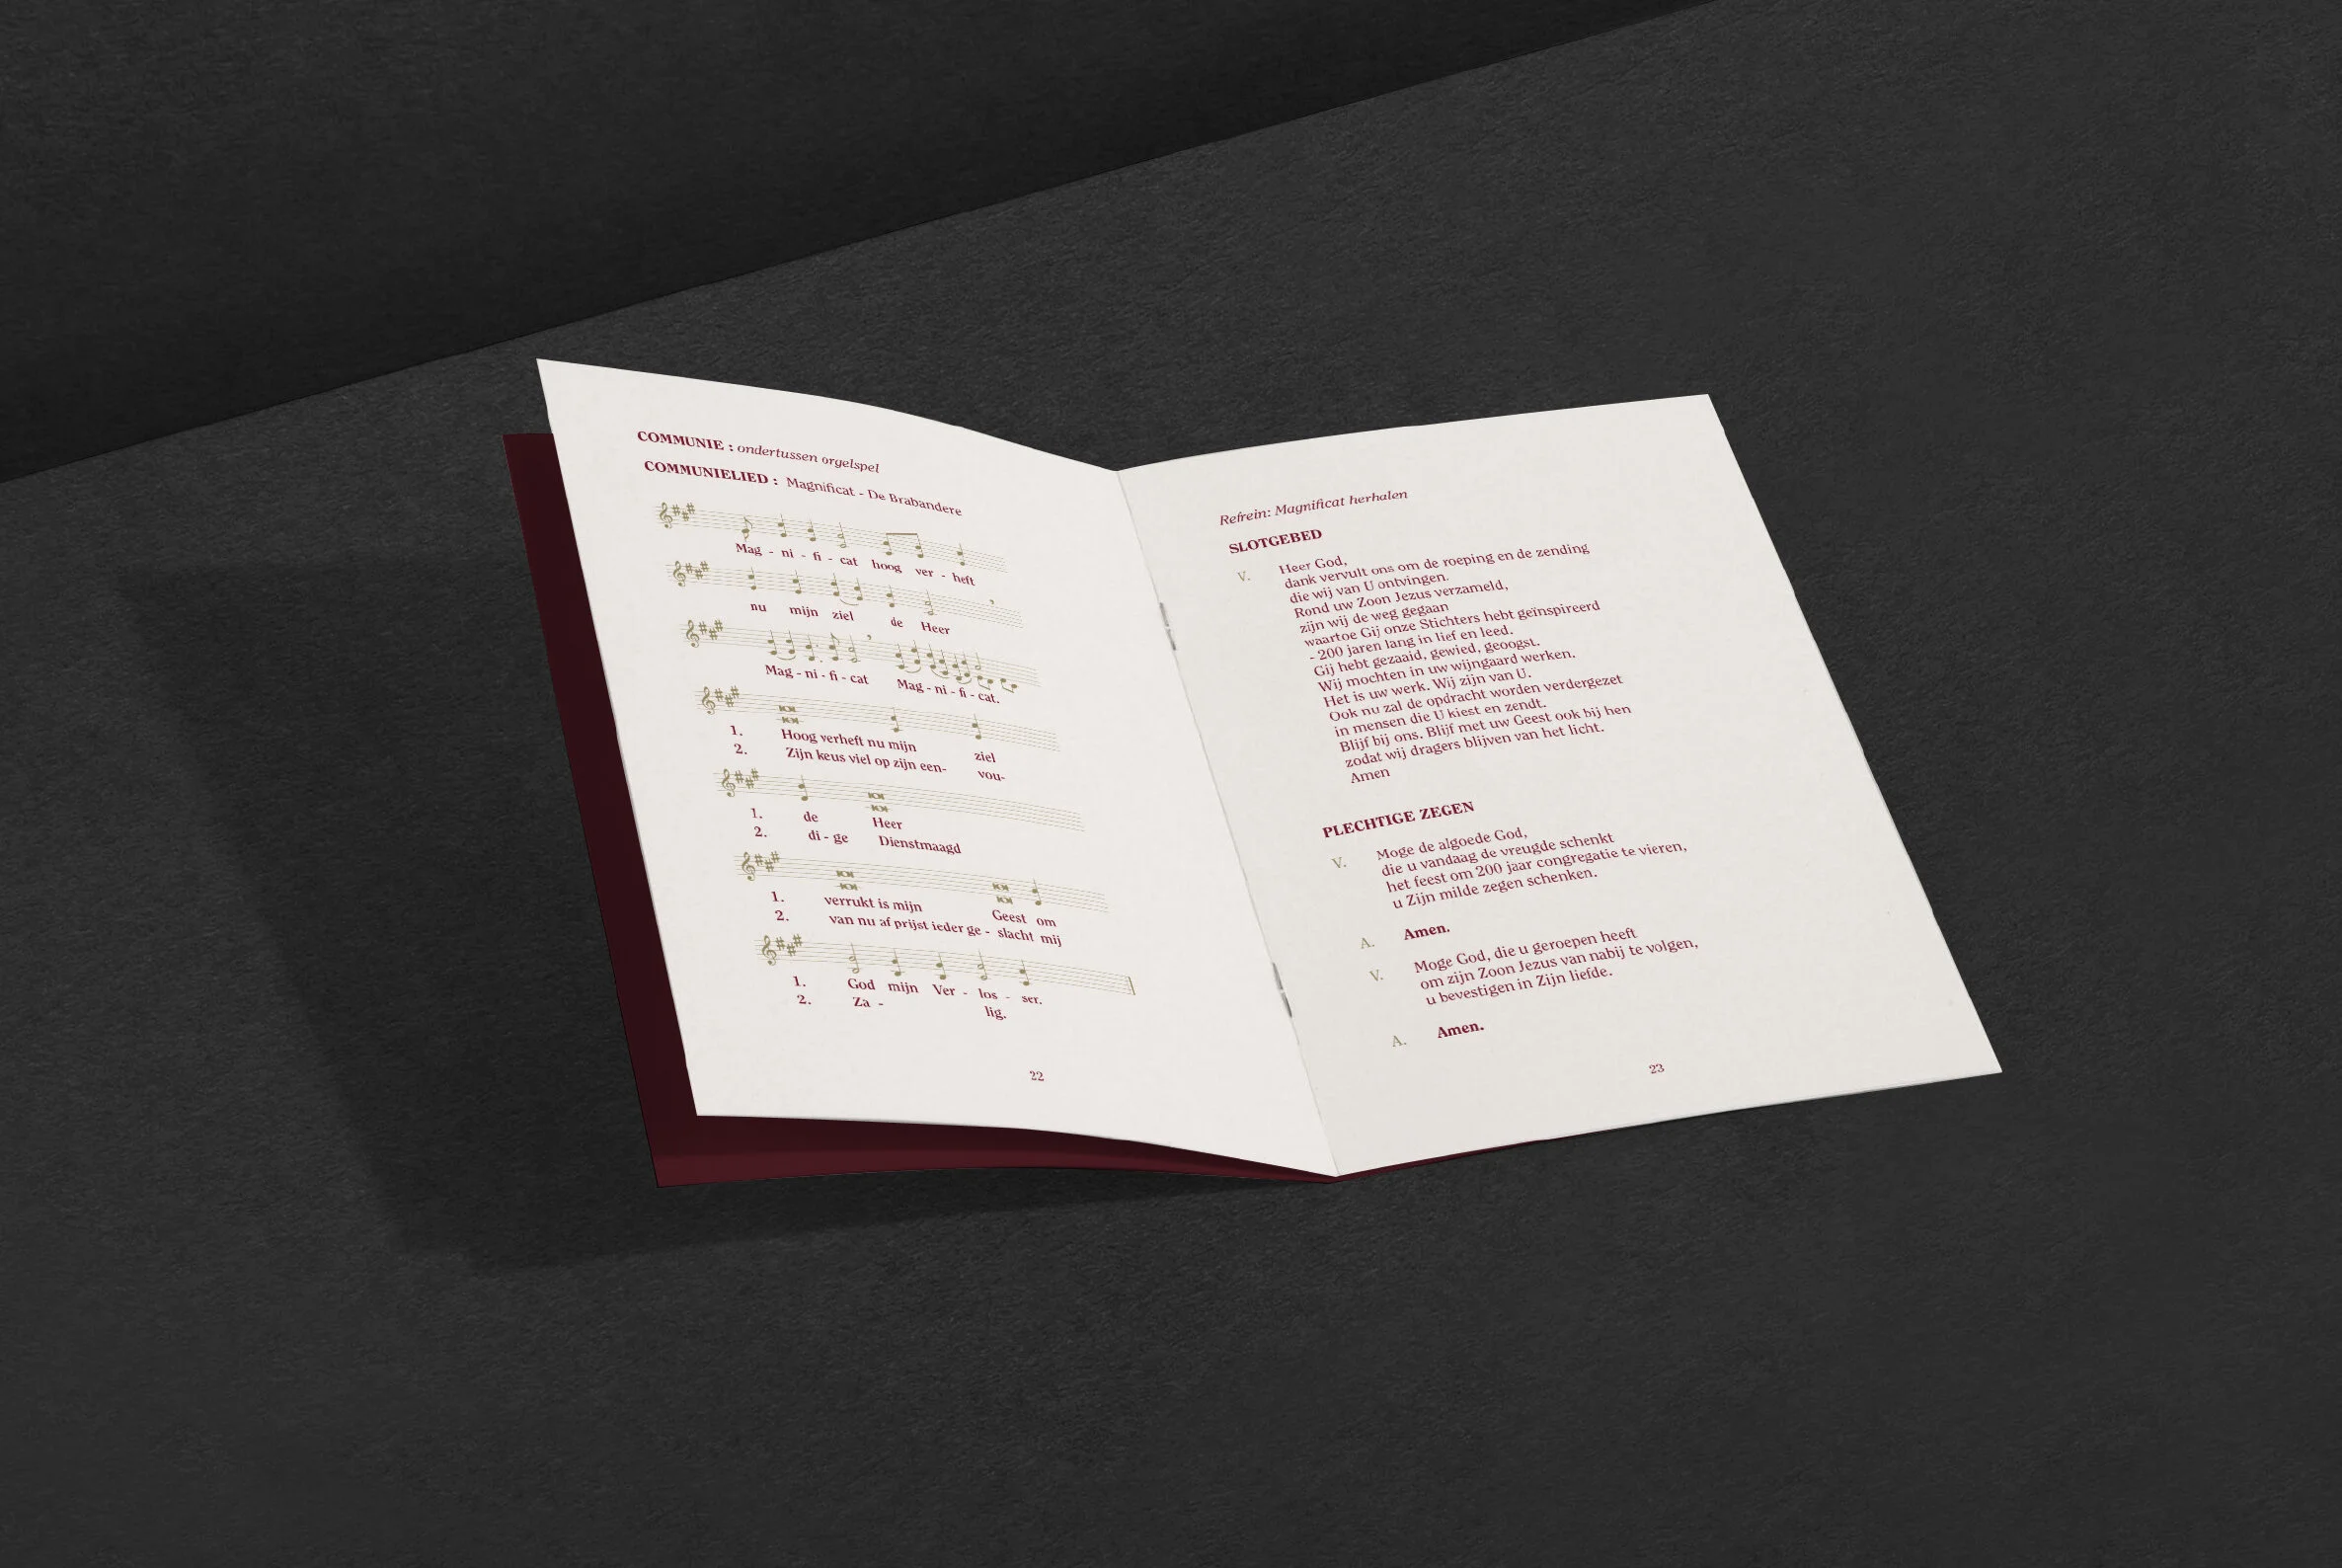 COMMUNIE : ondertussen orgelspel
COMMUNIELIED : Magnificat - De Brabandere
Mag - ni - fi - cat hoog ver - heft
nu mijn ziel de Heer
Mag - ni - fi - cat Mag - ni - fi - cat.
1. Hoog verheft nu mijn ziel
2. Zijn keus viel op zijn een- vou-
1. de Heer
2. di - ge Dienstmaagd
1. verrukt is mijn Geest om
2. van nu af prijst ieder ge - slacht mij
1. God mijn Ver - los - ser.
2. Za - lig.
22
Refrein: Magnificat herhalen
SLOTGEBED
V. Heer God,
dank vervult ons om de roeping en de zending
die wij van U ontvingen.
Rond uw Zoon Jezus verzameld,
zijn wij de weg gegaan
waartoe Gij onze Stichters hebt geïnspireerd
- 200 jaren lang in lief en leed.
Gij hebt gezaaid, gewied, geoogst.
Wij mochten in uw wijngaard werken.
Het is uw werk. Wij zijn van U.
Ook nu zal de opdracht worden verdergezet
in mensen die U kiest en zendt.
Blijf bij ons. Blijf met uw Geest ook bij hen
zodat wij dragers blijven van het licht.
Amen
PLECHTIGE ZEGEN
V. Moge de algoede God,
die u vandaag de vreugde schenkt
het feest om 200 jaar congregatie te vieren,
u Zijn milde zegen schenken.
A. Amen.
V. Moge God, die u geroepen heeft
om zijn Zoon Jezus van nabij te volgen,
u bevestigen in Zijn liefde.
A. Amen.
23